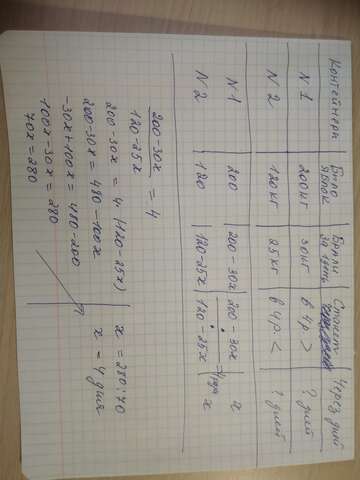 Контейнеры | Было яблок | Брали за день | Станет | Через дней
N 1 | 200 кг | 30 кг | в 4 р. > | ? дней
N 2 | 120 кг | 25 кг | в 4 р. < | ? дней
N 1 | 200 | 200 - 30x | 200 - 30x | x
N 2 | 120 | 120 - 25x | 120 - 25x | x
200 - 30x / 120 - 25x = 4
200 - 30x = 4 · (120 - 25x)
200 - 30x = 480 - 100x
-30x + 100x = 480 - 200
100x - 30x = 280
70x = 280
x = 280 : 70
x = 4 дня